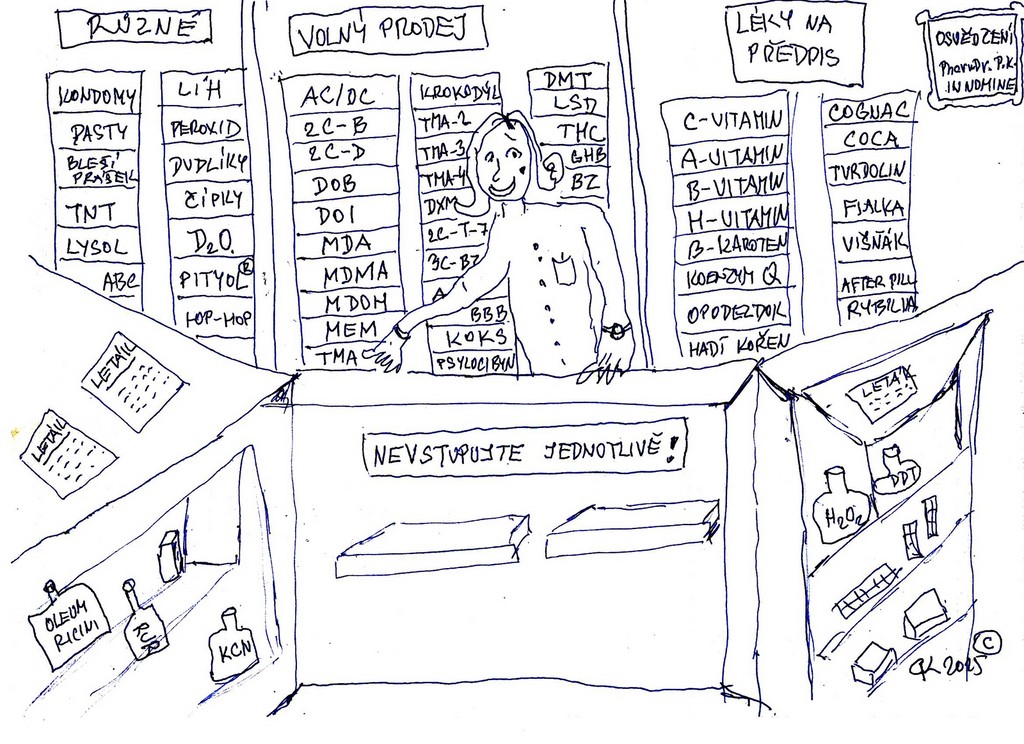 RŮZNÉ
KONDOMY
PASTY
BLEŠÍ
PRÁŠEK
TNT
LYSOL
ABC
LÍH
PEROXID
DUDLÍKY
ČÍPKY
D₂O
PITYOL®
HOP-HOP
VOLNÝ PRODEJ
AC/DC
2C-B
2C-D
DOB
DOI
MDA
MDMA
MDOM
MEM
TMA
KROKODÝL
TMA-2
TMA-3
TMA-4
DXM
2C-T-7
3C-BZ
A
BBB
KOKS
PSYLOCIBYN
DMT
LSD
THC
GHB
BZ
LÉKY NA
PŘEDPIS
C-VITAMIN
A-VITAMIN
B-VITAMIN
H-VITAMIN
B-KAROTEN
KOENZYM Q
OPODELDOK
HADÍ KOŘEN
COGNAC
COCA
TVRDOLIN
FIALKA
VIŠŇÁK
AFTER PILL
RYBILKA
OSVĚDČENÍ
PharmDr. P.K.
IN NOMINE
LETÁK
LETÁK
NEVSTUPUJTE JEDNOTLIVĚ!
LETÁK
OLEUM
RICINI
RUR
KCN
H₂O₂
DDT
©
GK 2025